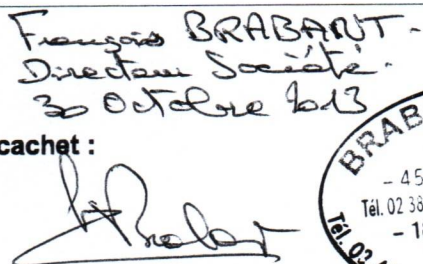 François BRABANT -
Directeur Société -
30 Octobre 2013
cachet :
BRAB
- 45
Tél. 02 38
- 18
Tél. 02